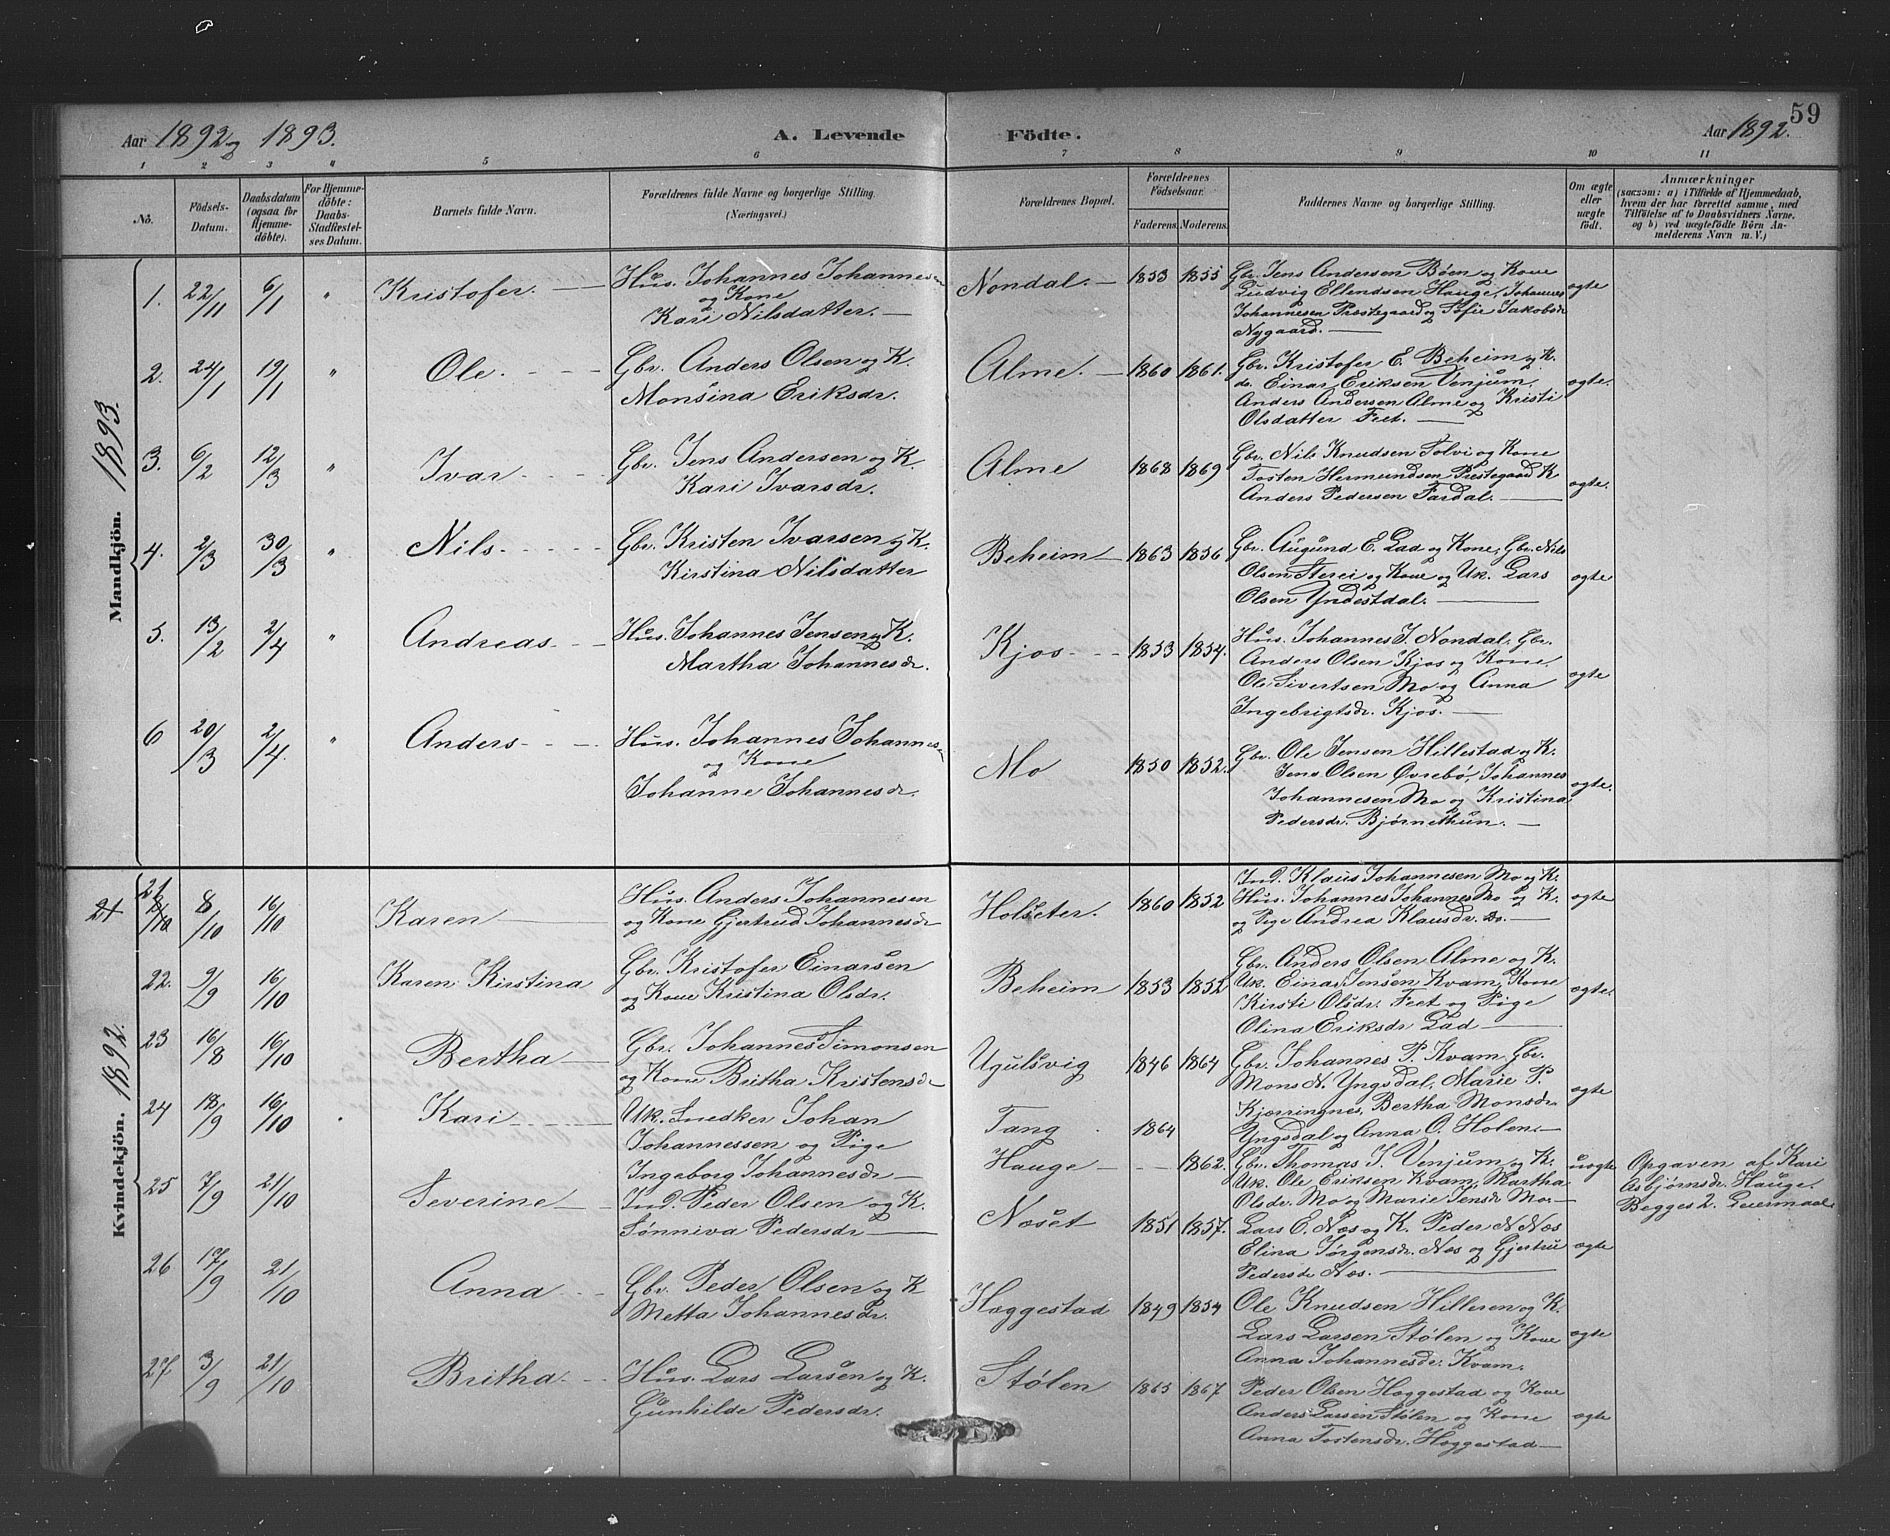 59
Aar 1892 og 1893. A. Levende Födte. Aar 1892.
1 2 3 " 5 6 7 8 9 10 11
No.
Födsels-
Datum.
Daabsdatum
(ogsaa for
Hjemme-
döbte).
For Hjemme-
döbte:
Daabs-
Stadfæstel-
ses Datum.
Barnets fulde Navn.
Forældrenes fulde Navne og borgerlige Stilling.
(Næringsvei.)
Forældrenes Bopæl.
Forældrenes
Födselsaar.
Faderens. Moderens.
Faddernes Navne og borgerlige Stilling.
Om ægte
eller
uægte
födt.
Anmærkninger
(saasom: a) i Tilfælde af Hjemmedaab,
hvem der har forrettet samme, med
Tilföielse af to Daabsvidners Navne.
og b) ved uægtefödte Börn An-
melderens Navn m. V.)
Mandkjön. 1893.
1. 22/11 6/1 " Kristofer.
Hus. Johannes Johannesen
og Kone
Kari Nilsdatter.
Nondal. 1853 1855
Gbr. Jens Andersen Bøen og Kone
Ludvig Ellendsen Hauge, Johannes
Johannesen Præstegaard og Sofie Jakobsdr
Nygaard.
ægte
2. 24/1 19/1 " Ole.
Gbr. Anders Olsen og K.
Monsina Eriksdr.
Alme. 1860 1861.
Gbr. Kristofer E. Beheim og K.
do. Einar Eriksen Venjum,
Anders Andersen Alme og Kristi
Olsdatter Feet.
ægte.
3. 6/2 12/3 " Ivar
Gbr. Jens Andersen og K.
Kari Ivarsdr.
Alme 1868 1869
Gbr. Nils Knudsen Tolvi og Kone
Tosten Hermundsen Prestegaard K
Anders Pedersen Fardal.
ægte.
4. 2/3 30/3 " Nils.
Gbr. Kristen Ivarsen og K.
Kirstina Nilsdatter
Beheim 1863 1856
Gbr. Augund E. Lad og Kone, Gbr. Nils
Olsen Sterei og Kone og Uk. Lars
Olsen Yndestdal.
ægte
5. 13/2 2/4 " Andreas.
Hus. Johannes Jensen og K.
Martha Johannesdr.
Kjos 1853 1854.
Hus. Johannes J. Nondal, Gbr.
Anders Olsen Kjos og Kone
Ole Sivertsen Mo og Anna
Ingebrigtsdr. Kjos.
ægte
6 20/3 2/4. " Anders
Hus. Johannes Johannesen
og Kone
Johanne Johannesdr.
Mo 1850 1852.
Gbr. Ole Jensen Hillestad og K.
Jens Olsen Øvrebø, Johannes
Johannesen Mo og Kristina
Pedersdr. Bjørnethun.
ægte.
Kvindekjön. 1892.
21 8/10 16/10 Karen
Hus. Anders Johannesen
og Kone Gjertrud Johannesdr
Holseter. 1860 1852
Ind. Klaus Johannesen Mo og K.
Hus. Johannes Johannes Mo og K.
og Pige Andrea Klausdr. do.
ægte
22. 9/9 16/10 Karen Kirstina
Gbr. Kristofer Einarsen
og Kone Kristina Olsdr.
Beheim 1853 1852
Gbr. Anders Olsen Alme og K.
Uk. Einar Jensen Kvam, Kone
Kirsti Olsdr. Feet og Pige
Olina Eriksdr Lad
ægte.
23 16/8 16/10 Bertha
Gbr. Johannes Simonsen
og Kone Britha Kristensdr
Ugulsvig 1846 1864
Gbr. Johannes P. Kvam, Gbr.
Mons N. Yngsdal, Marie P.
Kjørringnes, Bertha Monsdr.
Yngsdal og Anna O. Holen.
ægte
24 18/9 16/10 Kari
Uk. Snedker Johan
Johannessen og Pige
Ingeborg Johannesdr
Tang 1864
Hauge 1862.
Gbr. Thomas J. Venjum og K.
Uk. Ole Eriksen Kvam, Martha
Olsdr. Mo og Marie Jensdr Mo.
uægte
Opgaven af Kari
Asbjørnsdr. Hauge.
Begges 2. Leiermaal.
25 7/9 21/10 Severine
Ind. Peder Olsen og K.
Sønniva Pedersdr
Næset 1851 1857.
Lars E. Næs og K. Peder N Næs
Elina Jørgensdr. Næs og Gjertru
Pedersdr Næs.
ægte
26 17/9 21/10 Anna
Gbr. Peder Olsen og K
Metta Johannesdr.
Hæggestad 1849 1854
Ole Knudsen Hilleren og K.
Lars Larsen Stølen og Kone
Anna Johannesdr. Kvam.
ægte
27 3/9 21/10 Britha
Hus. Lars Larsen og K.
Gunhilde Pedersdr.
Stølen 1865 1867
Peder Olsen Hæggestad og Kone
Anders Larsen Stølen og Kone
Anna Tostensdr. Hæggestad
ægte